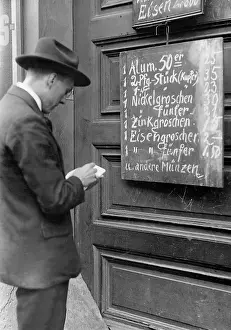 Eisen
1 Alum. 50er 35
1 2Pfg-Stück (Kupfer)
für
1 Nickelgroschen
1 " fünfer
1 Zinkgroschen
1 Eisengroschen
1 " fünfer
u. andere Münzen